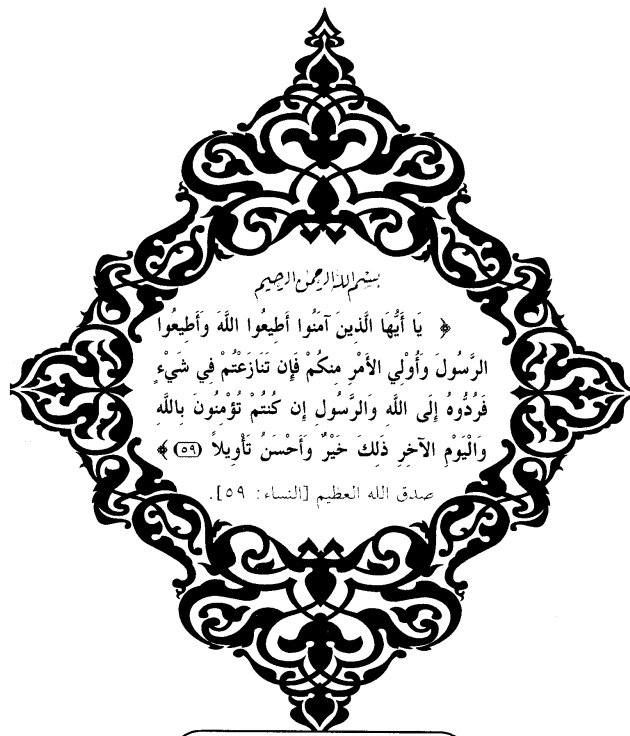 بسم الله الرحمن الرحيم
﴿ يَا أَيُّهَا الَّذِينَ آمَنُوا أَطِيعُوا اللَّهَ وَأَطِيعُوا
الرَّسُولَ وَأُوْلِي الأَمْرِ مِنكُمْ فَإِن تَنَازَعْتُمْ فِي شَيْءٍ
فَرُدُّوهُ إِلَى اللَّهِ وَالرَّسُولِ إِن كُنتُمْ تُؤْمِنُونَ بِاللَّهِ
وَالْيَوْمِ الآخِرِ ذَلِكَ خَيْرٌ وَأَحْسَنُ تَأْوِيلاً (٥٩) ﴾
صدق الله العظيم [النساء: ٥٩].